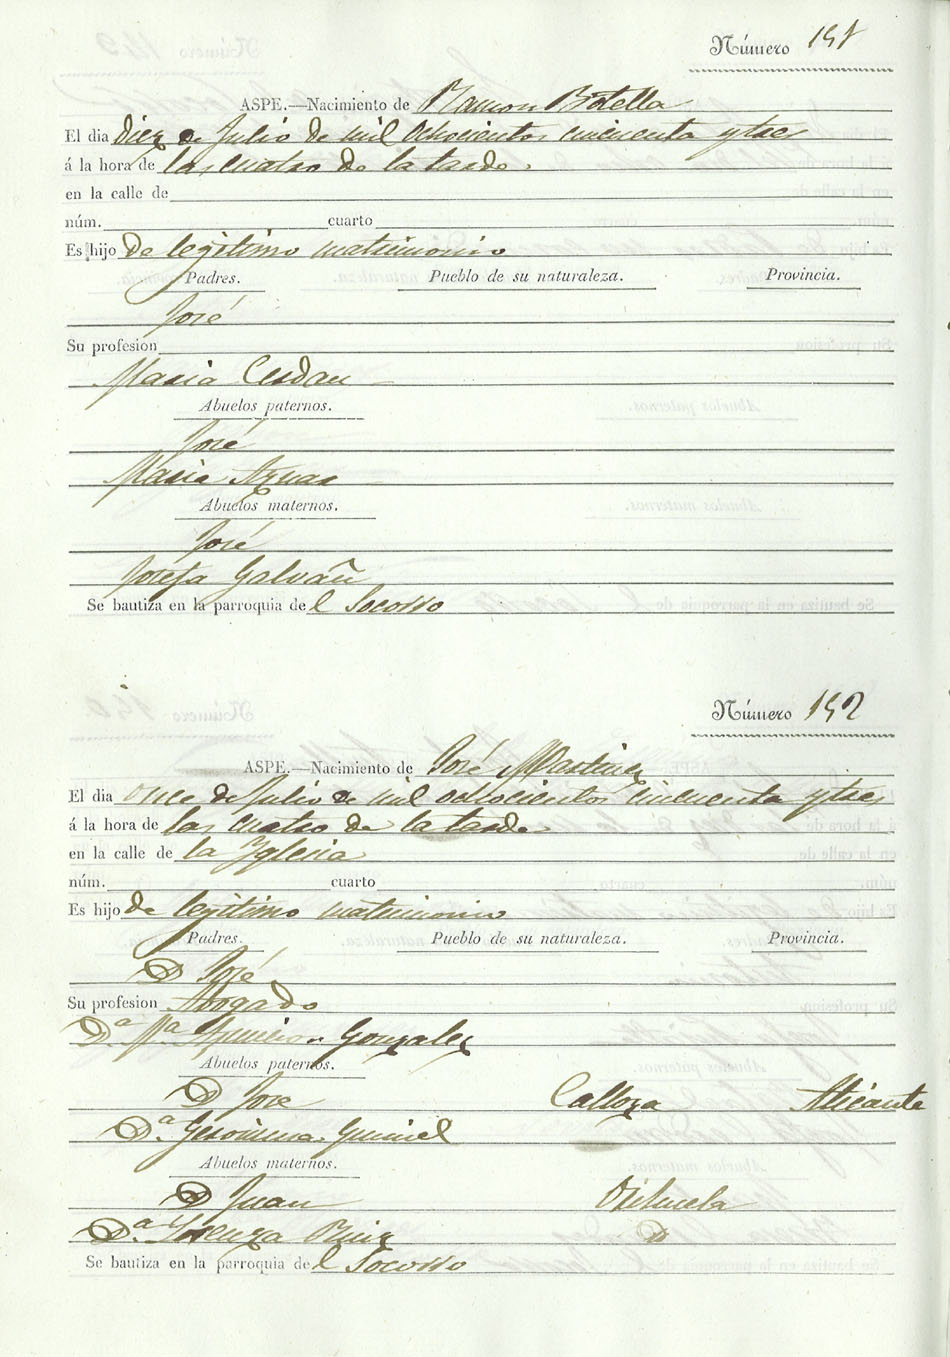 Número 151
ASPE.—Nacimiento de Ramon Botella
El dia diez de Julio de mil ochocientos cincuenta y tres
á la hora de las cuatro de la tarde.
en la calle de
núm. cuarto
Es hijo de legitimo matrimonio
Padres. Pueblo de su naturaleza. Provincia.
José
Su profesion
Maria Cerdan
Abuelos paternos.
José
Maria Aznar
Abuelos maternos.
José
Josefa Galvañ
Se bautiza en la parroquia del Socorro
Número 152
ASPE.—Nacimiento de José Martinez
El dia once de Julio de mil ochocientos cincuenta y tres
á la hora de las cuatro de la tarde
en la calle de la Yglesia
núm. cuarto
Es hijo de legitimo matrimonio
Padres. Pueblo de su naturaleza. Provincia.
D José
Su profesion Abogado
Dª Mª Gonzalez
Abuelos paternos.
D José Callosa Alicante
Dª Geronima
Abuelos maternos.
D Juan Orihuela
Dª Lorenza Ruiz D
Se bautiza en la parroquia del Socorro